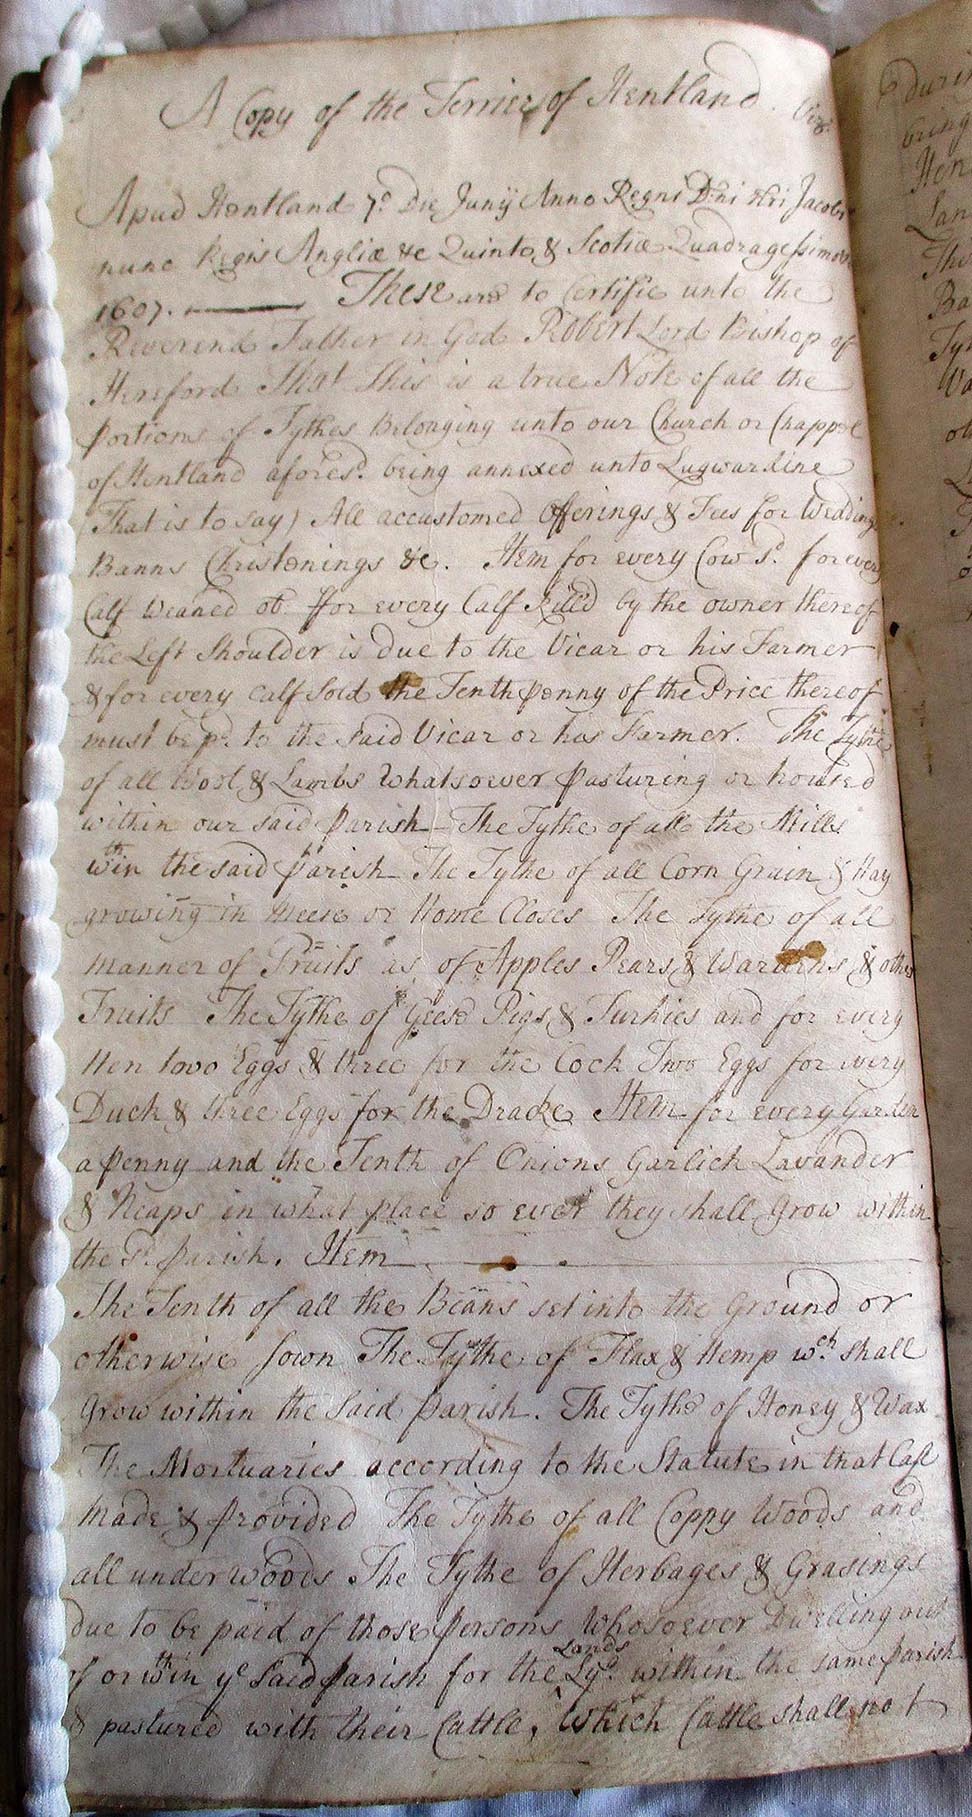 A Copy of the Terrier of Hentland. Vizt
Apud Hentland 7o. Die Junij Anno Regni Dni Nri Jacobi
nunc Regis Angliæ &c Quinto, & Scotiæ Quadragessimo
1607. These are to Certifie unto the
Reverend Father in God Robert Lord Bishop of
Hereford That this is a true Note of all the
portions of Tythes Belonging unto our Church or Chappel
of Hentland aforesd. being annexed unto Lugwardine
(That is to say) All accustomed Offerings & Fees for Weddings
Banns Christenings &c. Item for every Cow 1d. for every
Calf Weaned ob. ffor every Calf Kill'd by the owner thereof
the Left Shoulder is due to the Vicar or his Farmer
& for every Calf Sold the Tenth penny of the Price thereof
must be pd. to the said Vicar or his Farmer. The Tythe
of all Wool & Lambs Whatsoever pasturing or housed
within our said Parish The Tythe of all the Mills
wthin the said parish The Tythe of all Corn Grain & Hay
growing in Meese or Home Closes The Tythe of all
manner of Fruits as of Apples Pears & Wardens & other
Fruits The Tythe of Geese Pigs & Turkies and for every
Hen two Eggs & three for the Cock Two Eggs for every
Duck & three Eggs for the Drake Item for every Garden
a penny and the Tenth of Onions Garlich Lavander
& Neaps in what place so ever they shall Grow within
the sd. parish. Item
The Tenth of all the Beans set into the Ground or
otherwise sown The Tythe of Flax & Hemp wch shall
Grow within the said parish. The Tythe of Honey & Wax
The Mortuaries according to the Statute in that Case
made & provided The Tythe of all Coppy Woods and
all underwoods The Tythe of Herbages & Grasings
due to be paid of those persons Whosoever Dwelling out
of or wthin ye said parish for the Lands within the same parish
& pastured with their Cattle, Which Cattle shall not
during
being
Hen